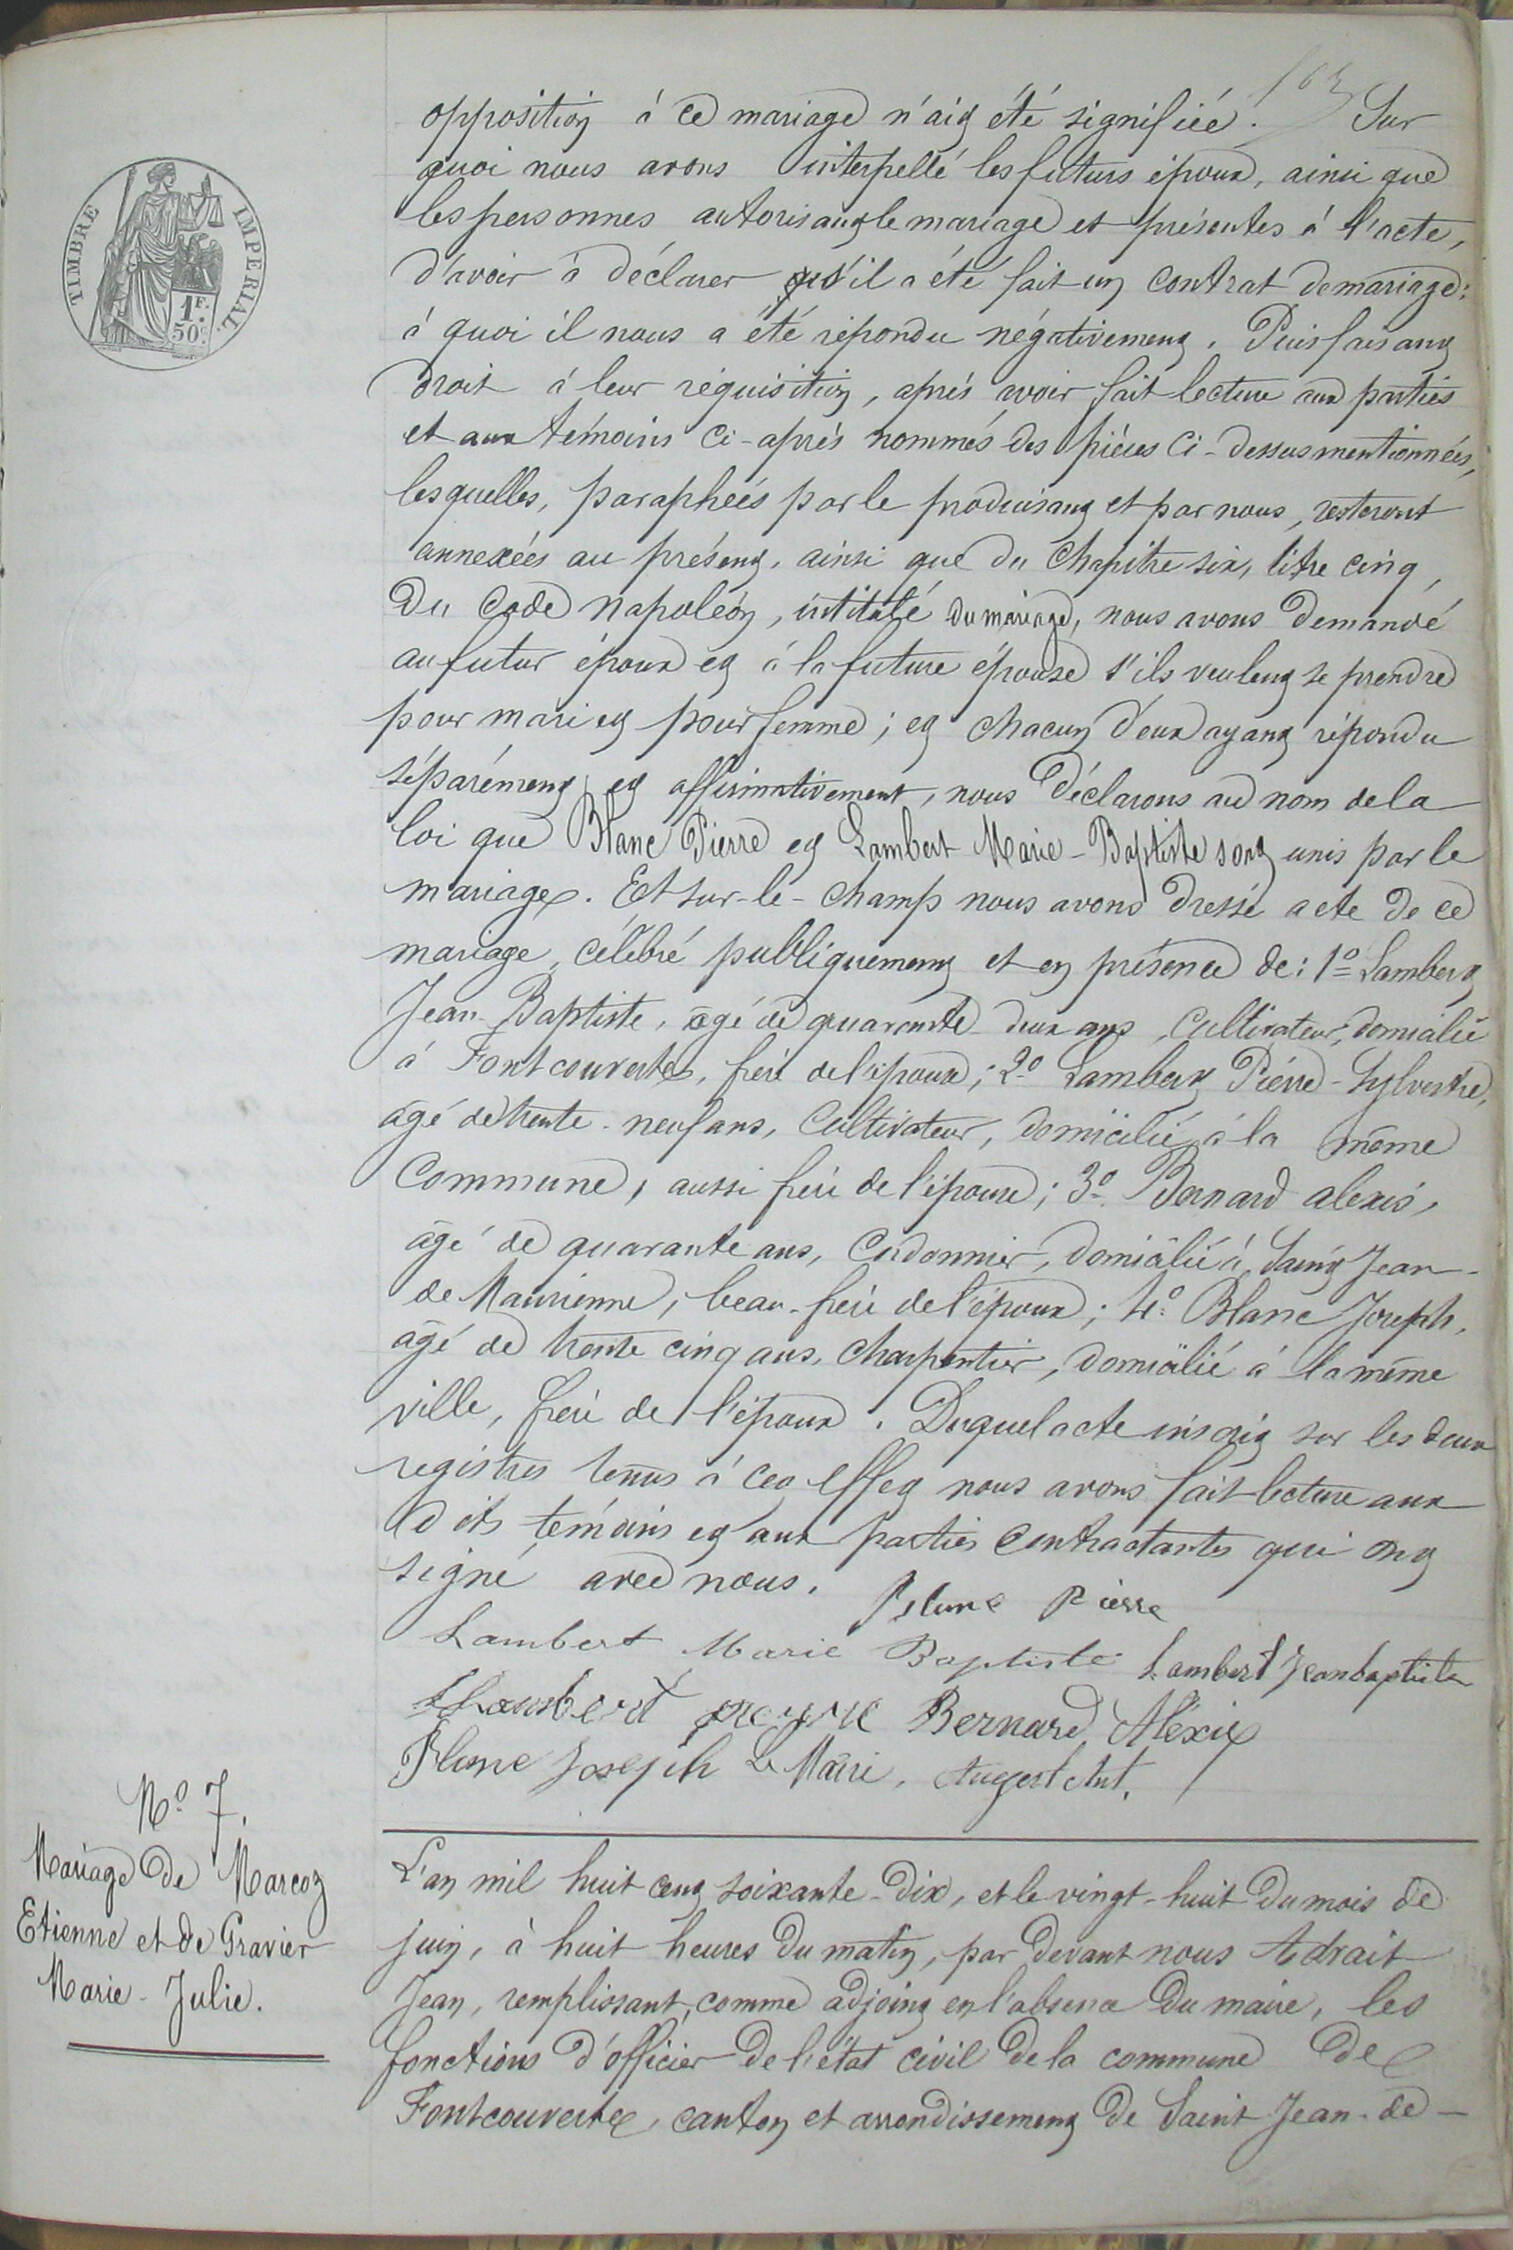 103
opposition à ce mariage n'ait été signifiée. Sur
quoi nous avons interpellé les futurs époux, ainsi que
les personnes autorisant le mariage et présentes à l'acte,
d'avoir à déclarer s'il a été fait un contrat de mariage:
à quoi il nous a été répondu négativement. Puis faisant
droit à leur réquisition, après avoir fait lecture aux parties
et aux témoins ci-après nommés des pièces ci-dessus mentionnées,
lesquelles, paraphées par le produisant et par nous, resteront
annexées au présent, ainsi que du chapitre six, titre cinq,
du Code Napoléon, intitulé du mariage, nous avons demandé
au futur époux et à la future épouse s'ils veulent se prendre
pour mari et pour femme; et chacun d'eux ayant répondu
séparément et affirmativement, nous déclarons au nom de la
loi que Blanc Pierre et Lambert Marie-Baptiste sont unis par le
mariage. Et sur-le-champ nous avons dressé acte de ce
mariage, célébré publiquement et en présence de: 1º Lambert
Jean-Baptiste, âgé de quarante-deux ans, cultivateur, domicilié
à Fontcouverte, frère de l'épouse; 2º Lambert Pierre-Sylvestre,
âgé de trente-neuf ans, cultivateur, domicilié à la même
commune, aussi frère de l'épouse; 3º Bernard Alexis,
âgé de quarante ans, cordonnier, domicilié à Saint Jean-
de Maurienne, beau-frère de l'époux; 4º Blanc Joseph,
âgé de trente cinq ans, charpentier, domicilié à la même
ville, frère de l'époux. Duquel acte inscrit sur les deux
registres tenus à cet effet nous avons fait lecture aux
dits témoins et aux parties contractantes qui ont
signé avec nous. Blanc Pierre
Lambert Marie Baptiste Lambert Jean baptiste
Lambert pierre Bernard Aléxis
Blanc Joseph Le Maire, Augert Ant.
Nº 7.
Mariage de Marcoz
Etienne et de Gravier
Marie-Julie.
L'an mil huit cent soixante-dix, et le vingt-huit du mois de
juin, à huit heures du matin, par devant nous Adrait
Jean, remplissant, comme adjoint en l'absence du maire, les
fonctions d'officier de l'état civil de la commune de
Fontcouverte, canton et arrondissement de Saint Jean-de-
TIMBRE IMPERIAL.
1F.
50c.